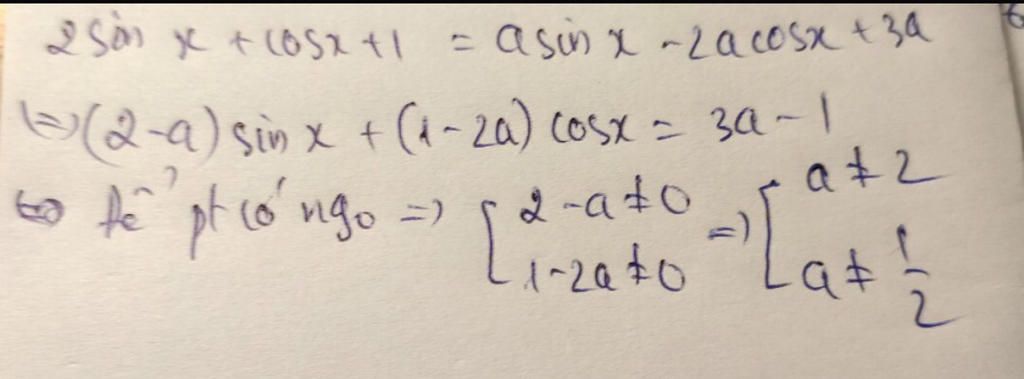 2 sin x + cosx + 1 = a sin x - 2a cosx + 3a
(=) (2-a) sin x + (1-2a) cosx = 3a - 1
⇔ Để pt có ngo => [ 2 - a ≠ 0 => [ a ≠ 2
1 - 2a ≠ 0 a ≠ 1/2